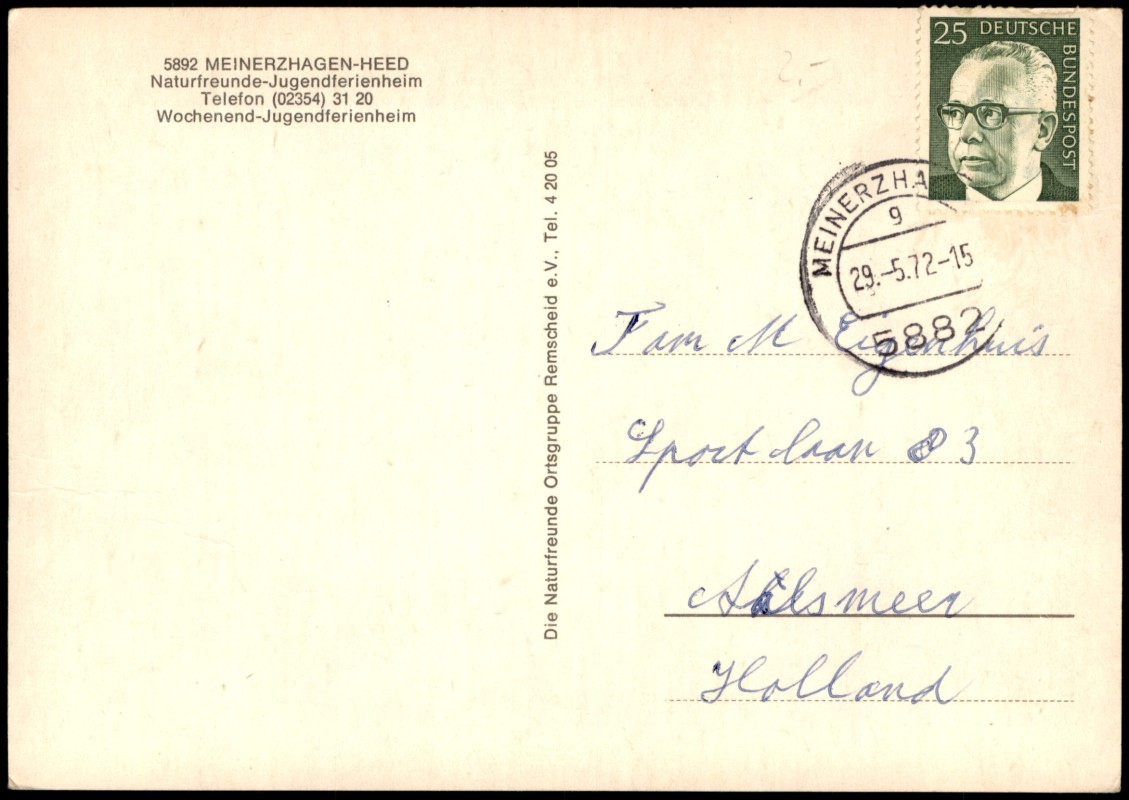 5892 MEINERZHAGEN-HEED
Naturfreunde-Jugendferienheim
Telefon (02354) 31 20
Wochenend-Jugendferienheim
2,-
25 DEUTSCHE
BUNDESPOST
MEINERZHA
g
29.-5.72-15
5882
Die Naturfreunde Ortsgruppe Remscheid e.V., Tel. 4 20 05
Fam M Eigenhuis
Sportlaan 83
Aalsmeer
Holland